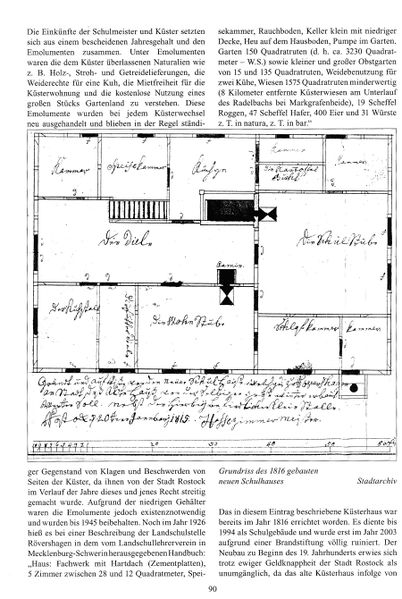 Die Einkünfte der Schulmeister und Küster setzten
sich aus einem bescheidenen Jahresgehalt und den
Emolumenten zusammen. Unter Emolumenten
waren die dem Küster überlassenen Naturalien wie
z. B. Holz-, Stroh- und Getreidelieferungen, die
Weiderechte für eine Kuh, die Mietfreiheit für die
Küsterwohnung und die kostenlose Nutzung eines
großen Stücks Gartenland zu verstehen. Diese
Emolumente wurden bei jedem Küsterwechsel
neu ausgehandelt und blieben in der Regel ständi-
sekammer, Rauchboden, Keller klein mit niedriger
Decke, Heu auf dem Hausboden, Pumpe im Garten,
Garten 150 Quadratruten (d. h. ca. 3230 Quadrat-
meter – W.S.) sowie kleiner und großer Obstgarten
von 15 und 135 Quadratruten, Weidebenutzung für
zwei Kühe, Wiesen 1575 Quadratruten minderwertig
(8 Kilometer entfernte Küsterwiesen am Unterlauf
des Radelbachs bei Markgrafenheide), 19 Scheffel
Roggen, 47 Scheffel Hafer, 400 Eier und 31 Würste
z. T. in natura, z. T. in bar."
Kammer
Speisekammer
Küchen
Kammer
Kammer
Die Diele
Die Schul Stube
Camin
Die Wohn Stube
Schlafkammer
Kammer
10
20
30
40
50
ger Gegenstand von Klagen und Beschwerden von
Seiten der Küster, da ihnen von der Stadt Rostock
im Verlauf der Jahre dieses und jenes Recht streitig
gemacht wurde. Aufgrund der niedrigen Gehälter
waren die Emolumente jedoch existenznotwendig
und wurden bis 1945 beibehalten. Noch im Jahr 1926
hieß es bei einer Beschreibung der Landschulstelle
Rövershagen in dem vom Landschullehrerverein in
Mecklenburg-Schwerin herausgegebenen Handbuch:
„Haus: Fachwerk mit Hartdach (Zementplatten),
5 Zimmer zwischen 28 und 12 Quadratmeter, Spei-
Grundriss des 1816 gebauten
neuen Schulhauses Stadtarchiv
Das in diesem Eintrag beschriebene Küsterhaus war
bereits im Jahr 1816 errichtet worden. Es diente bis
1994 als Schulgebäude und wurde erst im Jahr 2003
aufgrund einer Brandstiftung völlig ruiniert. Der
Neubau zu Beginn des 19. Jahrhunderts erwies sich
trotz ewiger Geldknappheit der Stadt Rostock als
unumgänglich, da das alte Küsterhaus infolge von
90